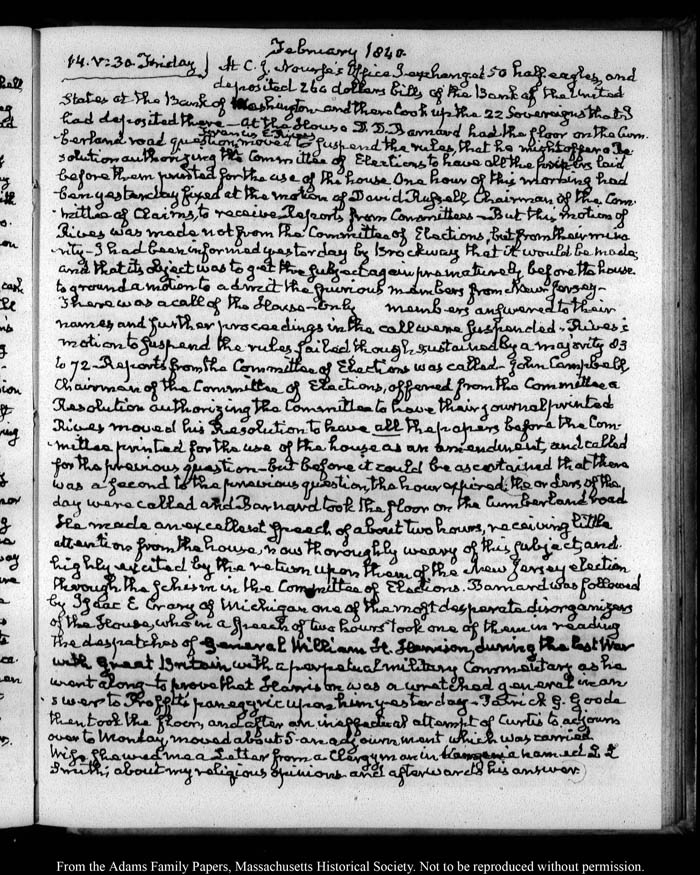 February 1840.
14. V:30. Friday At C. J. Nourse's Office I exchanged 50 half eagles, and
deposited 260 dollars bills of the Bank of the United
States at the Bank of Washington and there took up the 22 Sovereigns that I
had deposited there — At the House D. D. Barnard had the floor on the Cum-
berland road question
Francis E. Rives
moved to suspend the rules, that he might offer a Re-
solution authorizing the Committee of Elections to have all the papers laid
before them printed for the use of the house. One hour of this morning had
been yesterday fixed at the motion of David Russell Chairman of the Com-
mittee of Claims, to receive Reports from Committees — But this motion of
Rives was made not from the Committee of Elections, but from their mino-
rity — I had been informed yesterday by Brockway that it would be made,
and that its object was to get the subject again prematurely before the house
to ground a motion to admit the spurious members from New-Jersey —
There was a call of the House — Only members answered to their
names and further proceedings in the call were suspended — Rives's
motion to suspend the rules failed though sustained by a majority 83
to 72 — Reports from the Committee of Elections was called — John Campbell
Chairman of the Committee of Elections, offered from the Committee a
Resolution authorizing the Committee to have their journal printed
Rives moved his Resolution to have all the papers before the Com-
mittee printed for the use of the house as an amendment, and called
for the previous question — but before it could be ascertained that there
was a second to the previous question, the hour expired; the orders of the
day were called and Barnard took the floor on the Cumberland road
He made an excellent speech of about two hours, receiving little
attention from the house, now thoroughly weary of this subject, and
highly excited by the return upon them of the New Jersey election
through the schism in the Committee of Elections. Barnard was followed
by Isaac E. Crary of Michigan one of the most desperate disorganizers
of the House, who in a speech of two hours took one of them in reading
the despatches of General William H. Harrison, during the last War
with Great Britain with a perpetual military Commentary as he
went along — to prove that Harrison was a wretched general in an-
swer to Proffit's panegyric upon him yesterday — Patrick G. Goode
then took the floor, and after an ineffectual attempt of Curtis to adjourn
over to Monday, moved about 5 an adjournment which was carried
Wife shewed me a Letter from a Clergyman in named
Smith; about my religious opinions and afterwards his answer.
From the Adams Family Papers, Massachusetts Historical Society. Not to be reproduced without permission.